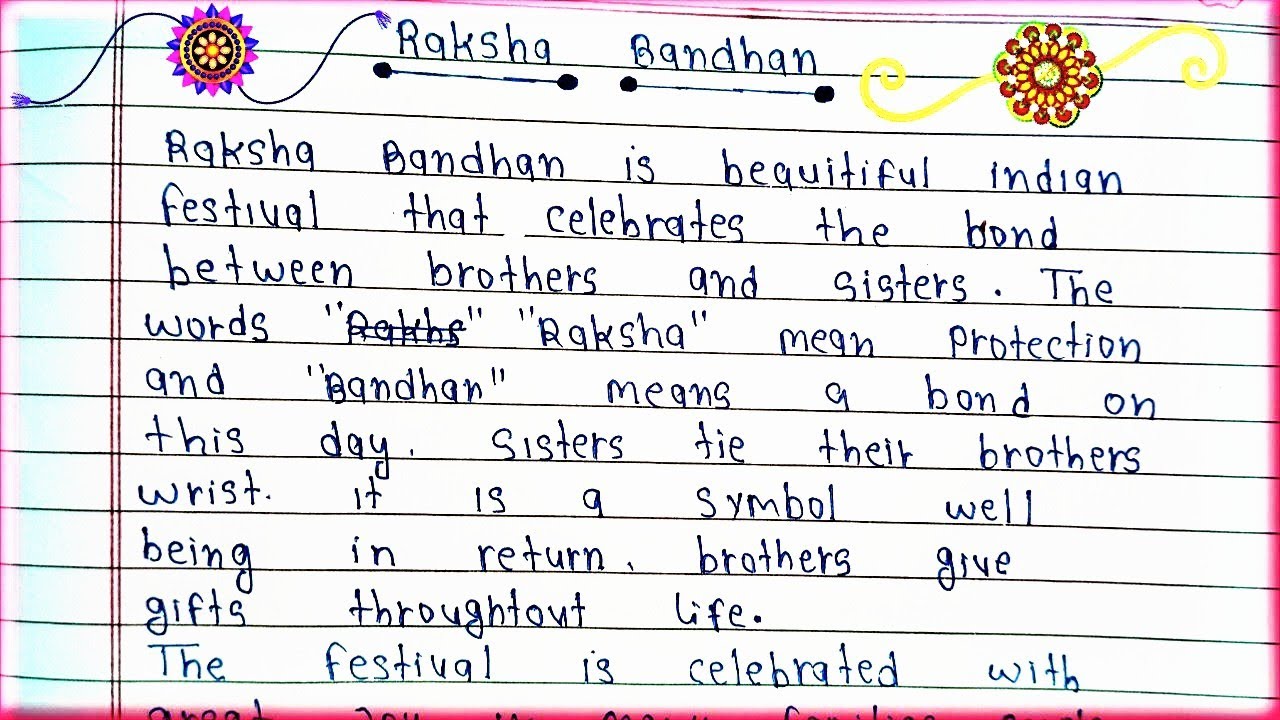 Raksha Bandhan
Raksha Bandhan is beauitiful indian
festival that celebrates the bond
between brothers and sisters. The
words "Rakhs" "Raksha" mean protection
and "Bandhan" means a bond on
this day. sisters tie their brothers
wrist. it is a symbol well
being in return. brothers give
gifts throughtout life.
The festival is celebrated with
great joy in many families